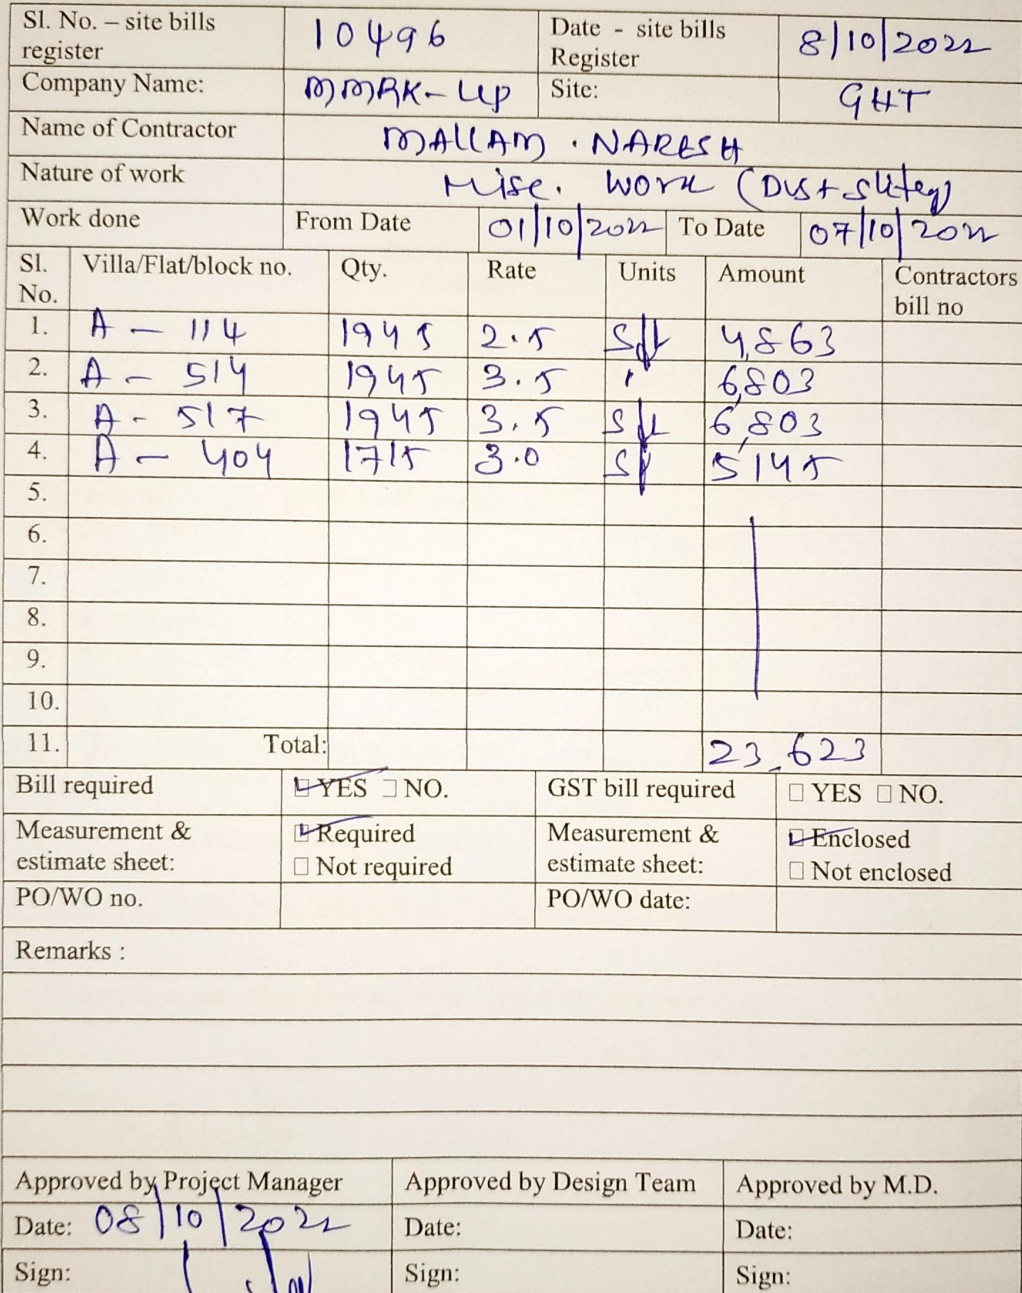 Sl. No. – site bills register 10496 Date - site bills Register 8/10/2022
Company Name: MMRK-UP Site: GHT
Name of Contractor MALLAM . NARESH
Nature of work Misc. Work
Work done From Date 01/10/2022 To Date 07/10/2022
Sl. No. Villa/Flat/block no. Qty. Rate Units Amount Contractors bill no
1. A - 114 1945 2.5 Sft 4,863
2. A - 514 1945 3.5 " 6,803
3. A - 517 1945 3.5 Sft 6,803
4. A - 404 1715 3.0 Sf 5145
5.
6.
7.
8.
9.
10.
11. Total: 23,623
Bill required ☑ YES □ NO. GST bill required □ YES □ NO.
Measurement & estimate sheet: ☑ Required □ Not required Measurement & estimate sheet: ☑ Enclosed □ Not enclosed
PO/WO no. PO/WO date:
Remarks :
Approved by Project Manager Approved by Design Team Approved by M.D.
Date: 08/10/2022 Date: Date:
Sign: Sign: Sign: